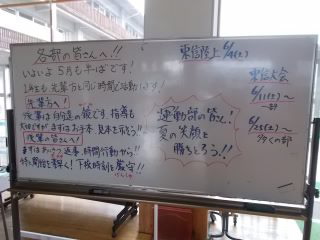 各部の皆さんへ!!
いよいよ5月も半ばです!
1年生も先輩方と同じ時間を活動です!
先輩方へ!
後輩は自分達の鏡です。指導も
大切ですが まずはお手本 見本を示そう!!
後輩の皆さんへ!
まずはあいさつ、返事、時間行動から!!
特に期日を書く! 下校時刻を厳守!!
運動部の皆さん!
夏の笑顔を
勝ちとろう!!
東信陸上 6/4(土)
東信大会
6/11(土)〜
一部
6/25(土)〜
多くの部